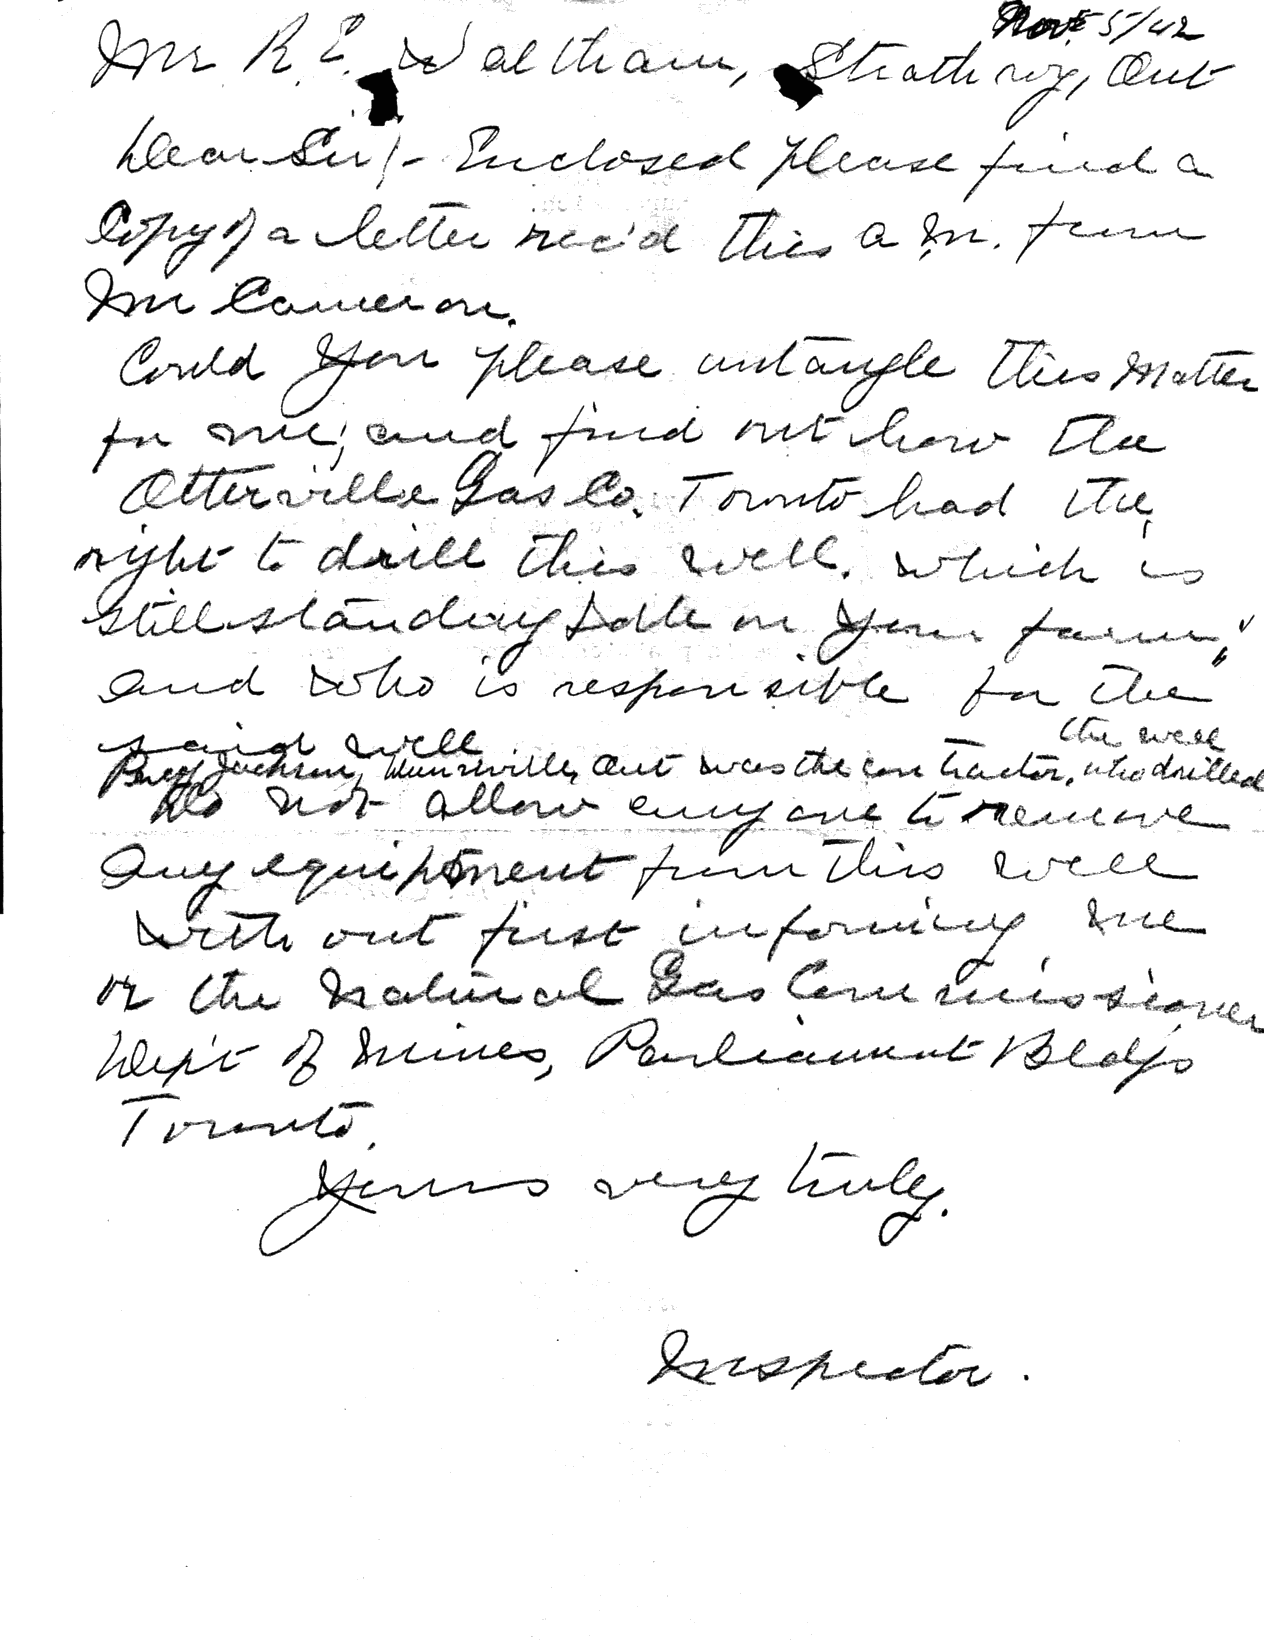 Nov. 5/42
Mr R. E. Waltham, Strathroy, Ont
Dear Sir/- Enclosed please find a
Copy of a letter rec'd this a.m. from
Mr Cameron.
Could you please untangle this matter
for me; and find out how the
Otterville Gas Co. Toronto had the
right to drill this well. which is
still standing idle on your farm,"
and who is responsible for the
said well
the well
Jackson, Dunnville, Ont was the contractor, who drilled
Do not allow anyone to remove
any equipment from this well
with out first informing me
or the Natural Gas Commissioner
Dep't of Mines, Parliament Bldgs
Toronto.
Yours very truly.
Inspector.